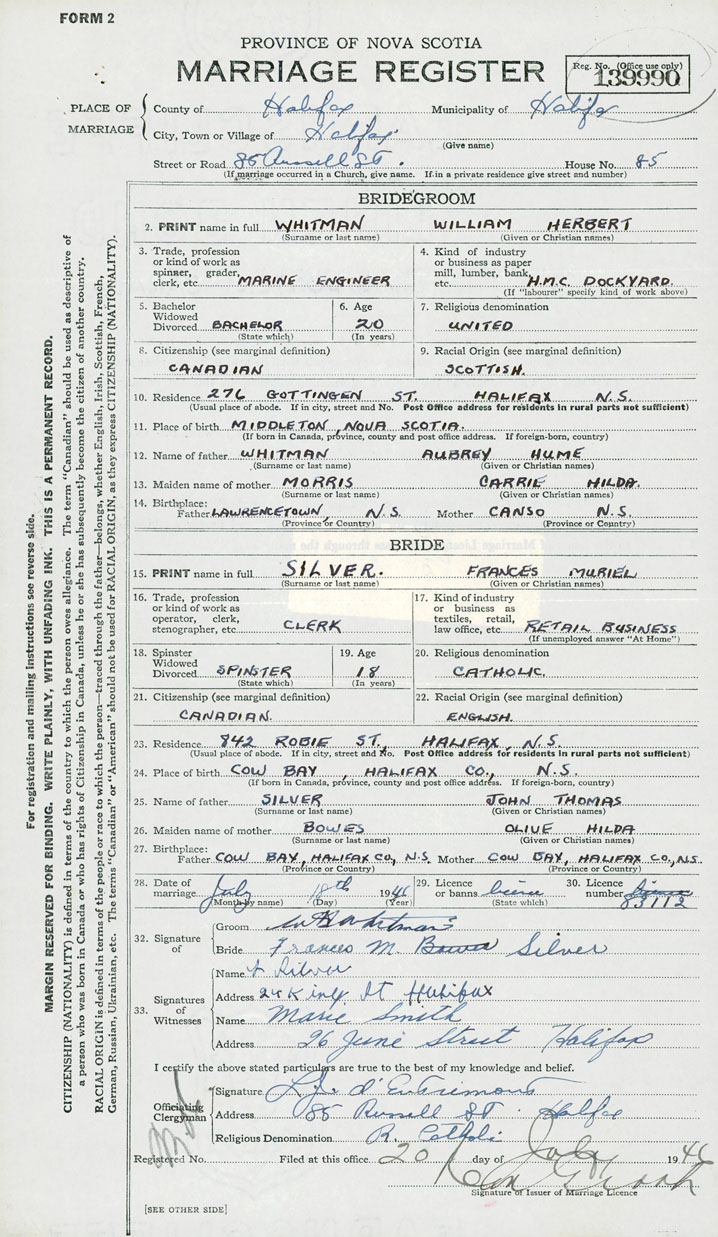 FORM 2
PROVINCE OF NOVA SCOTIA
MARRIAGE REGISTER
Reg. No. (Office use only)
139990
PLACE OF MARRIAGE
County of Halifax Municipality of Halifax
City, Town or Village of Halifax
(Give name)
Street or Road 85 Russell St. House No. 85
(If marriage occurred in a Church, give name. If in a private residence give street and number)
BRIDEGROOM
2. PRINT name in full WHITMAN WILLIAM HERBERT
(Surname or last name) (Given or Christian names)
3. Trade, profession or kind of work as spinner, grader, clerk, etc. MARINE ENGINEER
4. Kind of industry or business as paper mill, lumber, bank, etc. H.M.C. DOCKYARD.
(If "labourer" specify kind of work above)
5. Bachelor Widowed Divorced BACHELOR
(State which)
6. Age 20
(In years)
7. Religious denomination
UNITED
8. Citizenship (see marginal definition)
CANADIAN
9. Racial Origin (see marginal definition)
SCOTTISH.
10. Residence 276 GOTTINGEN ST. HALIFAX N.S.
(Usual place of abode. If in city, street and No. Post Office address for residents in rural parts not sufficient)
11. Place of birth MIDDLETON, NOVA SCOTIA.
(If born in Canada, province, county and post office address. If foreign-born, country)
12. Name of father WHITMAN AUBREY HUME
(Surname or last name) (Given or Christian names)
13. Maiden name of mother MORRIS CARRIE HILDA.
(Surname or last name) (Given or Christian names)
14. Birthplace:
Father LAWRENCETOWN, N.S. Mother CANSO N.S.
(Province or Country) (Province or Country)
BRIDE
15. PRINT name in full SILVER. FRANCES MURIEL
(Surname or last name) (Given or Christian names)
16. Trade, profession or kind of work as operator, clerk, stenographer, etc. CLERK
17. Kind of industry or business as textiles, retail, law office, etc. RETAIL BUSINESS
(If unemployed answer "At Home")
18. Spinster Widowed Divorced SPINSTER
(State which)
19. Age 18
(In years)
20. Religious denomination
CATHOLIC.
21. Citizenship (see marginal definition)
CANADIAN.
22. Racial Origin (see marginal definition)
ENGLISH.
23. Residence 842 ROBIE ST., HALIFAX, N.S.
(Usual place of abode. If in city, street and No. Post Office address for residents in rural parts not sufficient)
24. Place of birth COW BAY, HALIFAX CO., N.S.
(If born in Canada, province, county and post office address. If foreign-born, country)
25. Name of father SILVER JOHN THOMAS
(Surname or last name) (Given or Christian names)
26. Maiden name of mother BOWES OLIVE HILDA
(Surname or last name) (Given or Christian names)
27. Birthplace:
Father COW BAY, HALIFAX CO., N.S. Mother COW BAY, HALIFAX CO., N.S.
(Province or Country) (Province or Country)
28. Date of marriage July 18th 1946
(Month by name) (Day) (Year)
29. Licence or banns
(State which)
30. Licence number 83112
32. Signature of
Groom W Whitman
Bride Frances M. Silver
33. Signatures of Witnesses
Name Silver
Address 24 King St Halifax
Name Marie Smith
Address 26 June Street Halifax
I certify the above stated particulars are true to the best of my knowledge and belief.
Officiating Clergyman
Signature d'Entremont
Address 85 Russell St. Halifax
Religious Denomination R. Catholic
Registered No. Filed at this office 20 day of July 1946
Signature of Issuer of Marriage Licence
[SEE OTHER SIDE]
For registration and mailing instructions see reverse side.
MARGIN RESERVED FOR BINDING. WRITE PLAINLY, WITH UNFADING INK. THIS IS A PERMANENT RECORD.
CITIZENSHIP (NATIONALITY) is defined in terms of the country to which the person owes allegiance. The term "Canadian" should be used as descriptive of
a person who was born in Canada or who has rights of Citizenship in Canada, unless he or she has subsequently become the citizen of another country.
RACIAL ORIGIN is defined in terms of the people or race to which the person—traced through the father—belongs, whether English, Irish, Scottish, French,
German, Russian, Ukrainian, etc. The terms "Canadian" or "American" should not be used for RACIAL ORIGIN, as they express CITIZENSHIP (NATIONALITY).